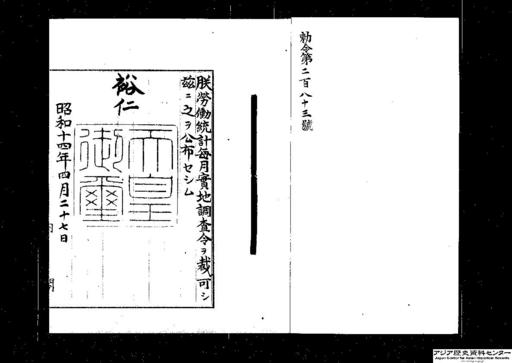 勅令第二百八十三號
朕勞働統計毎月實地調査令ヲ裁可シ
茲ニ之ヲ公布セシム
裕仁
天皇御璽
昭和十四年四月二十七日
アジア歴史資料センター
Japan Center for Asian Historical Records